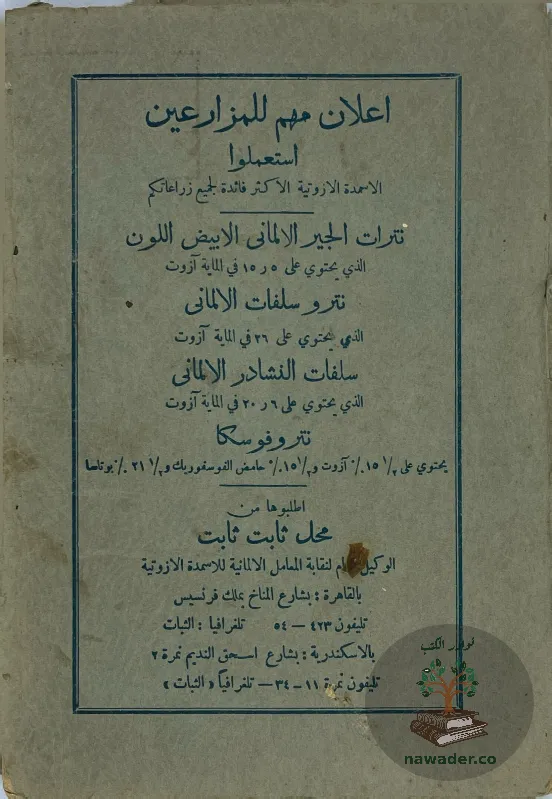 اعلان مهم للمزارعين
استعملوا
الاسمدة الازوتية الاكثر فائدة لجميع زراعاتكم
نترات الجير الالمانى الابيض اللون
الذي يحتوي على ٥ر١٥ في الماية آزوت
نترو سلفات الالمانى
الذي يحتوي على ٢٦ في الماية آزوت
سلفات النشادر الالمانى
الذي يحتوي على ٦ر٢٠ في الماية آزوت
نتروفوسكا
يحتوي على ١/٢ ١٥ ٪ آزوت و ١/٢ ١٥ ٪ حامض الفوسفوريك و ١/٢ ٢١ ٪ بوتاسا
اطلبوها من
محل ثابت ثابت
الوكيل لنقابة المعامل الالمانية للاسمدة الازوتية
بالقاهرة : بشارع المناخ بملك فرنسيس
تليفون ٤٢٣ — ٥٤ تلغرافيا : الثبات
بالاسكندرية : بشارع اسحق النديم نمرة ٢
تليفون نمرة ١١ — ٣٤ — تلغرافياً « الثبات »
نوادر الكتب
nawader.co